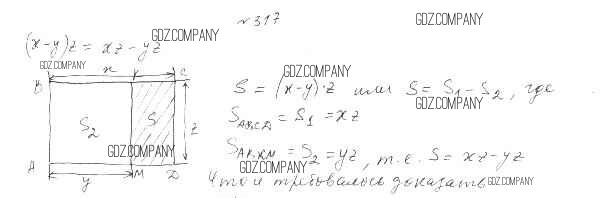 № 317
GDZ.COMPANY
(x-y)z = xz - yz
GDZ.COMPANY
GDZ.COMPANY
x
B K C
GDZ.COMPANY
S = (x-y)·z или S = S₁ - S₂, где
GDZ.COMPANY
S₂ S z
S_ABCD = S₁ = xz
GDZ.COMPANY
S_ABKM = S₂ = yz, т.е. S = xz - yz
GDZ.COMPANY
A M D
y
Что и требовалось доказать
GDZ.COMPANY